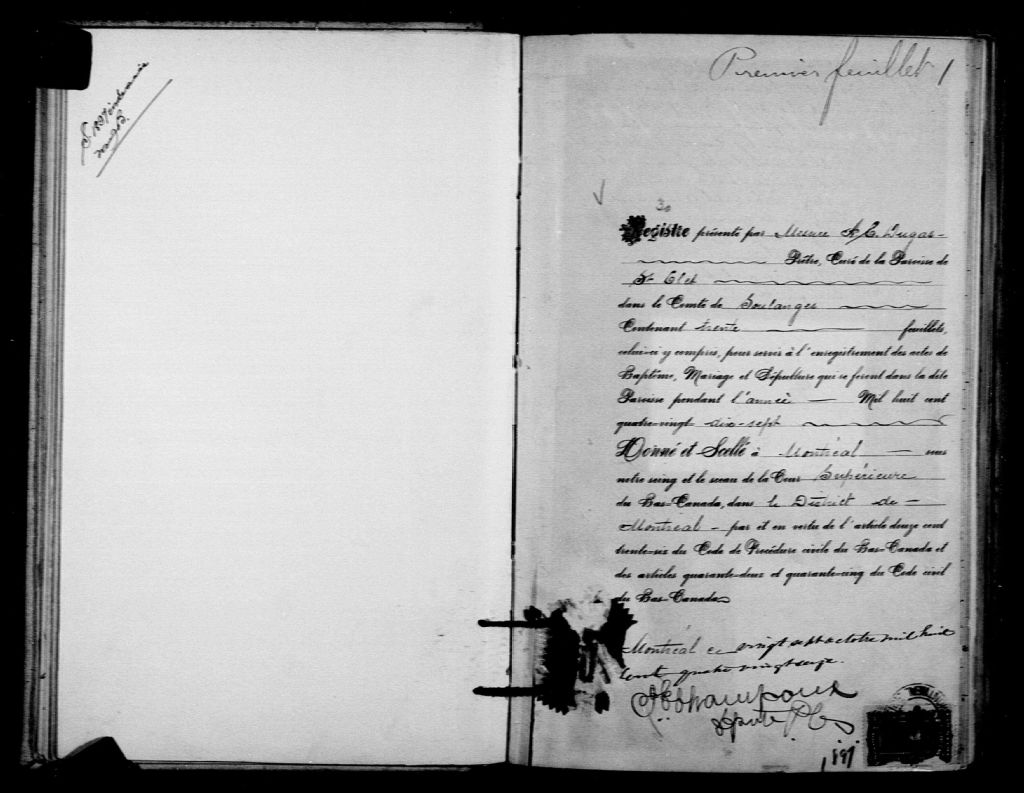 Premier feuillet 1
30
Registre présenté par Messire A. C. Dugas
Prêtre, Curé de la Paroisse de
St Clet
dans le Comté de Soulanges
Contenant trente feuillets,
celui-ci y compris, pour servir à l'enregistrement des actes de
Baptême, Mariage et Sépulture qui se feront dans la dite
Paroisse pendant l'année — Mil huit cent
quatre-vingt dix-sept
Donné et Scellé à Montréal — sous
notre seing et le sceau de la Cour Supérieure
du Bas-Canada, dans le District de —
Montréal - par et en vertu de l'article douze cent
trente-six du Code de Procédure civile du Bas-Canada et
des articles quarante-deux et quarante-cinq du Code civil
du Bas-Canada
Montréal ce vingt sept octobre mil huit
cent quatre vingt seize.
Députe P.C.S.
1897